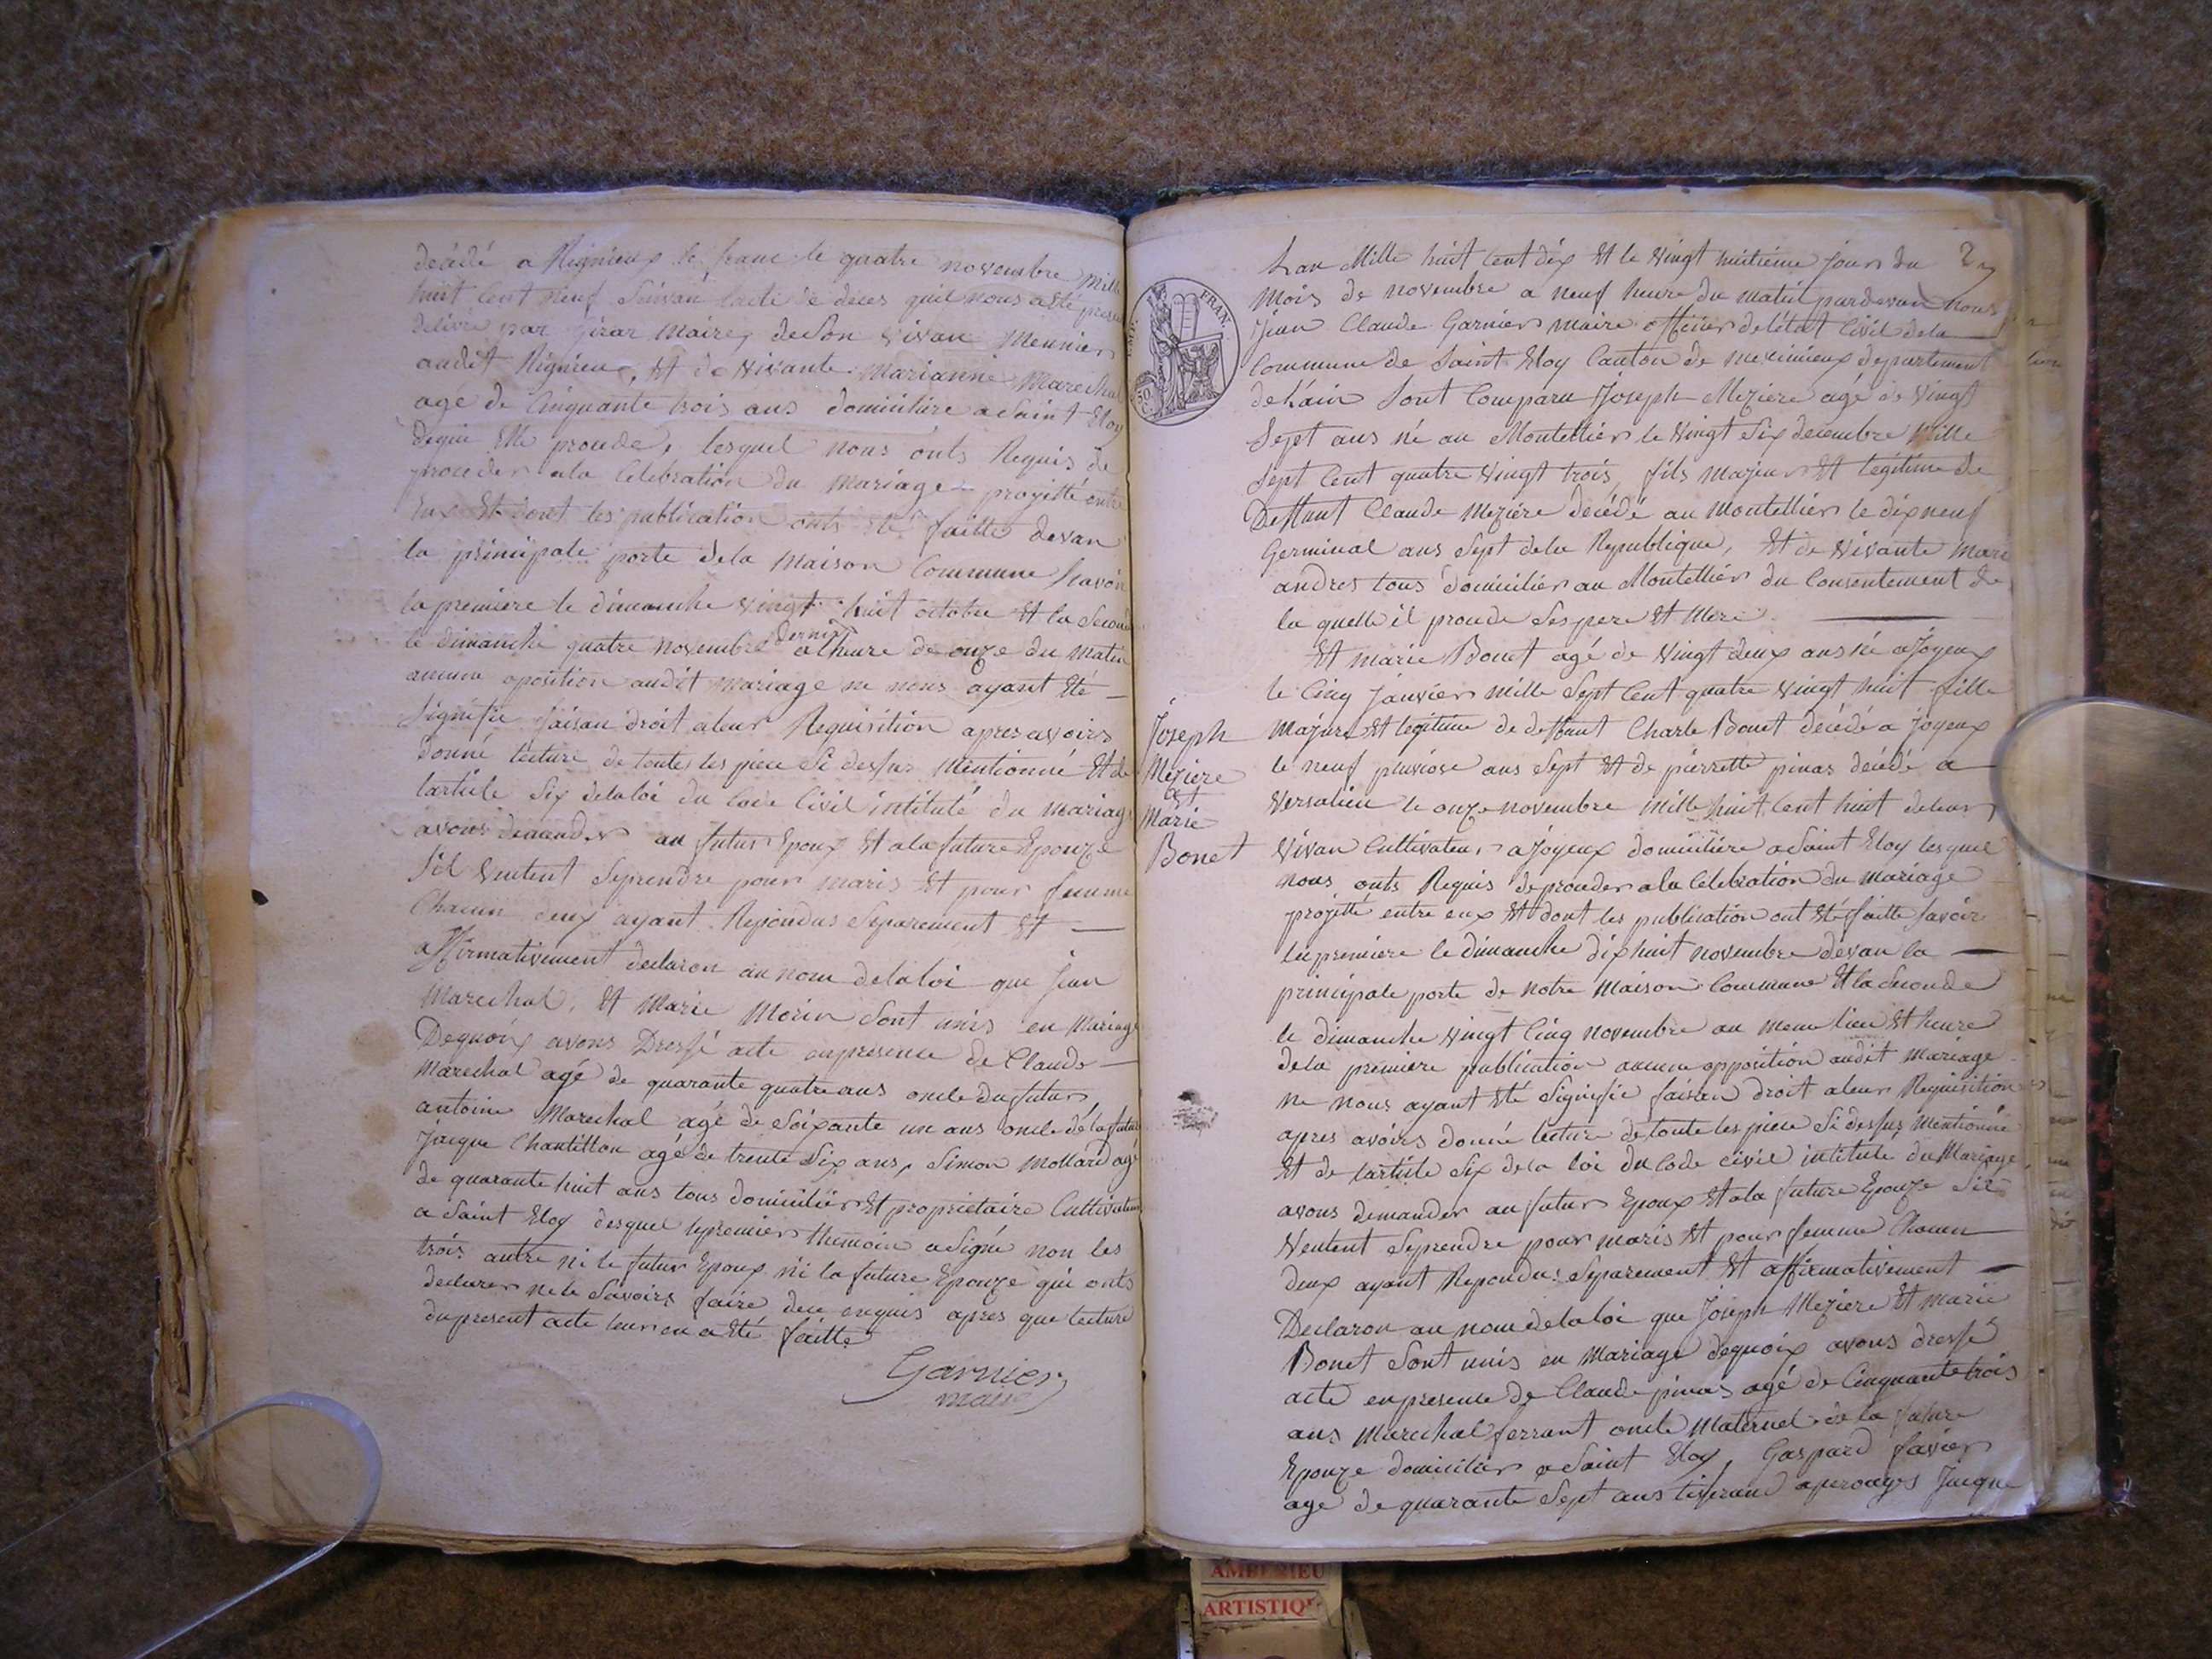 decédé a Rignieux le franc le quatre novembre mille
huit Cent neuf Suivan lacte de deces quil nous a été
delivré par Girar maire, de Son vivan Meunier
audit Rignieux, Et de vivante Marianne Marechal
age de Cinquante trois ans domicilière a Saint Eloy
dequi Elle procede, lesquel nous onts Requis de
proceder ala Celebration du mariage projetté entre
Eux Et dont les publication onts été faitte devan
la principale porte dela Maison Commune Savoir
la premiere le dimanche vingt huit octobre Et la Seconde
le dimanche quatre novembre dernier a lheure de onze du matin
aucune oposition audit mariage ne nous ayant Eté
Signifie faisan droit aleur Requisition apres avoirs
donné lecture de toute les piece Si dessus Mentionné Et de
larticle Six dela loi du Code Civil intitulé du Mariage
avons demander au futur Epoux Et ala future Epouze
Sil veulent Seprendre pour maris Et pour femme
Chacun deux ayant Repondus Separement Et
affirmativement declaron au nom dela loi que Jean
Marechal, Et Marie Morin Sont unis en Mariage
Dequoix avons Dressé acte enpresence de Claude
Marechal agé de quarante quatre ans oncle du futur,
antoine Marechal agé de Soixante un ans oncle de la future
Jacque Chantillon agé de trente Six ans, Simon Mollard agé
de quarante huit ans tous domicilier Et proprietaire Cultivateur
a Saint Eloy desquel lepremier themoin a Signé non les
trois autre ni le futur Epoux ni la future Epouze qui onts
declarer ne le Savoirs faire dece enquis apres que lecture
dupresent acte leur en a été faitte
Garnier
maire
EMP. FRAN.
50 C.
Lan Mille huit Cent dix Et le vingt huitieme jour du
mois de novembre a neuf heure du matin pardevan nous
Jean Claude Garnier maire officier de létat Civil dela
Commune de Saint Eloy Canton de meximieux departement
de lain Sont Comparu Joseph Meziere agé de vingt
Sept ans né au Montellier le vingt Six decembre Mille
Sept Cent quatre vingt trois, fils majeur Et legitime de
Deffunt Claude Meziere décédé au Montellier le dixneuf
Germinal ans Sept dela Republique, Et de vivante Marie
andres tous domicilier au Montellier du Consentement de
la quelle il procede Ses pere Et Mere
Et marie Bonet agé de vingt deux ans né a Joyeux
le Cinq Janvier mille Sept Cent quatre vingt huit fille
Majure Et legitime de deffunt Charle Bonet décédé a Joyeux
le neuf pluviose ans Sept Et de pierrette pinas décédé a
Versalieu le onze novembre Mille huit Cent huit deleur
vivan Cultivateur a Joyeux domicilière a Saint Eloy lesquel
nous onts Requis de proceder ala Célebration du mariage
projetté entre eux Et dont les publication ont Eté faitte Savoir
la premiere le dimanche dixhuit novembre devan la
principale porte de notre Maison Commune Et la Seconde
le dimanche vingt Cinq novembre au meme lieu Et heure
dela premiere publication aucun opposition audit mariage
ne nous ayant Eté Signifie faisan droit aleur Requisition
apres avoirs donné lecture de toute les piece Si dessus Mentionné
Et de lartticle Six dela loi du Code civil intitule du Mariage
avons demander au futur Epoux Et ala future Epouze Sil
Veulent Seprendre pour maris Et pour femme Chacun
deux ayant Repondus Separement Et affirmativement
Declaron au nom dela loi que Joseph Meziere Et Marie
Bonet Sont unis en Mariage dequoix avons dressé
acte enpresence de Claude pinas agé de Cinquante trois
ans Marechal ferrant oncle Maternel de la future
Epouze domicilier a Saint Eloy, Gaspard favier
agé de quarante Sept ans tisserand Jacque
Joseph
Meziere
Et
Marie
Bonet
ARTISTIQ